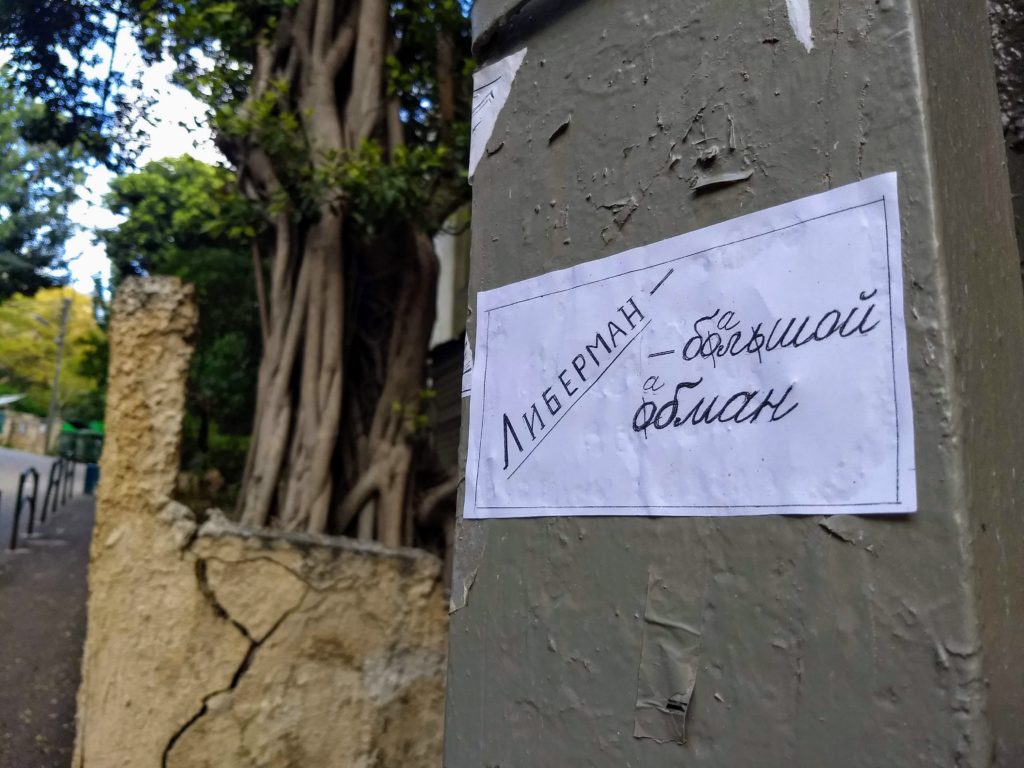 ЛИБЕРМАН —
а
— большой
а
обман